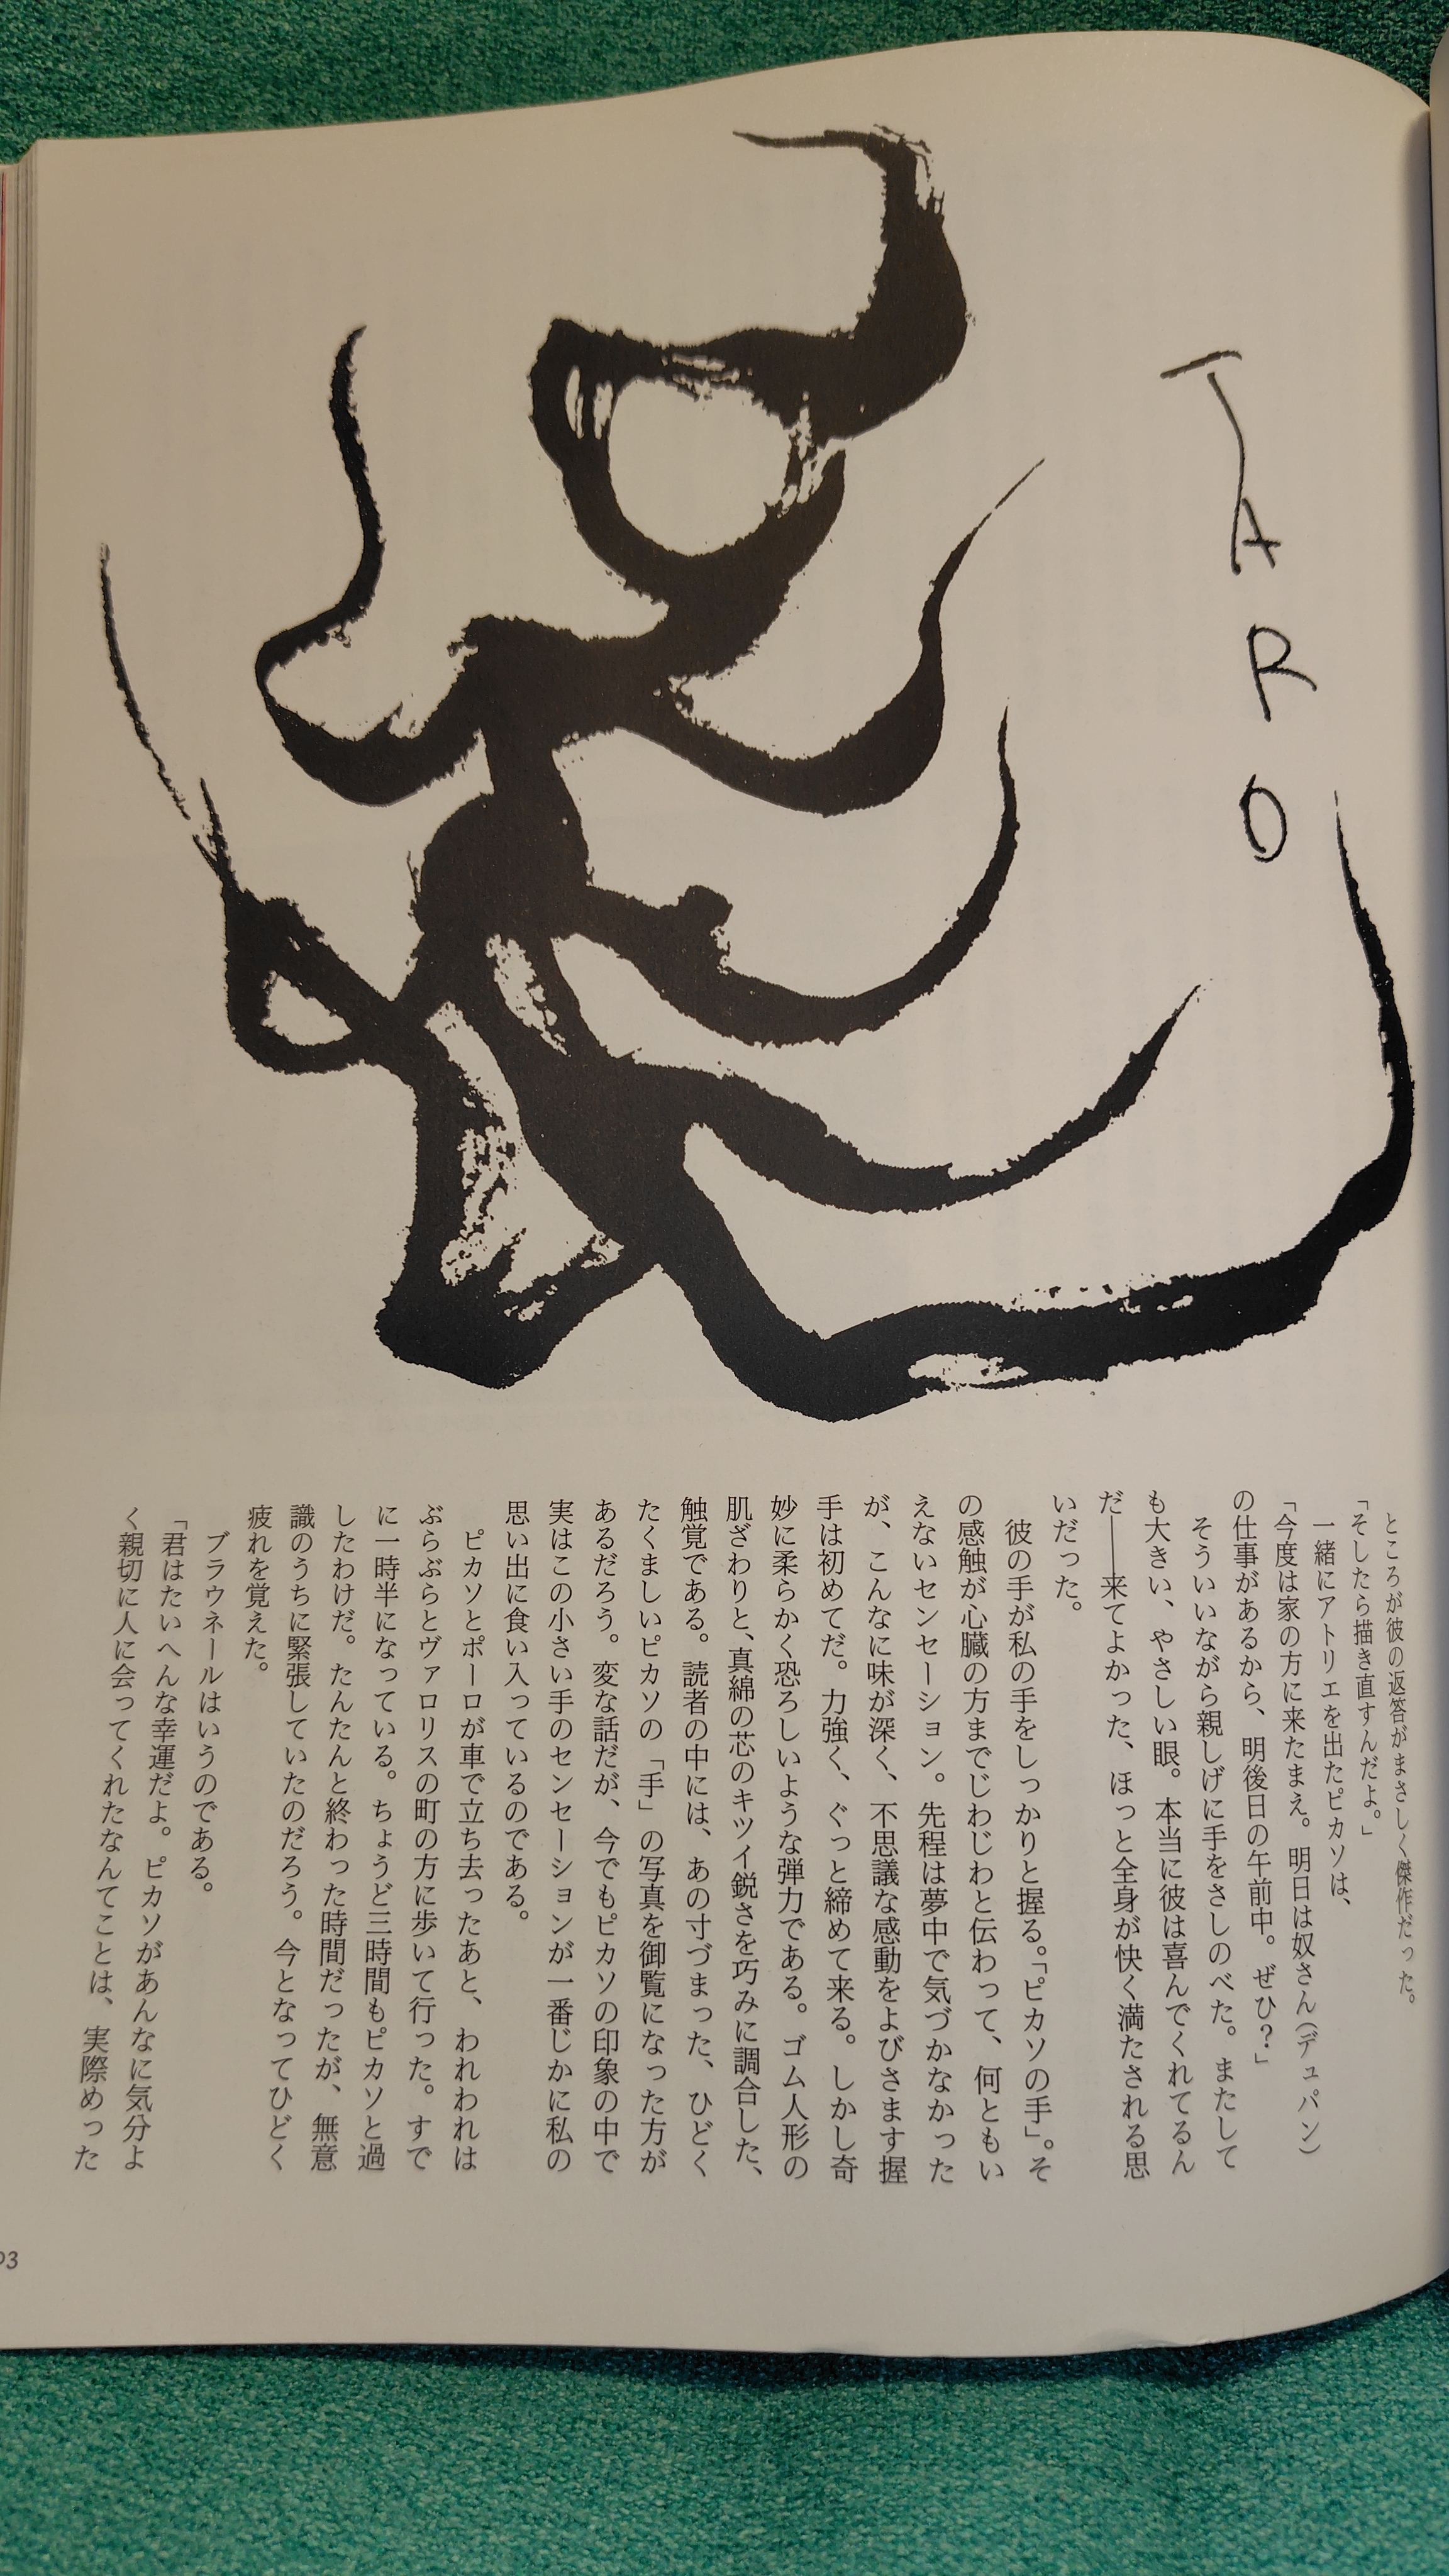 TARO
ところが彼の返答がまさしく傑作だった。
「そしたら描き直すんだよ。」
一緒にアトリエを出たピカソは、
「今度は家の方に来たまえ。明日は奴さん(デュパン)
の仕事があるから、明後日の午前中。ぜひ?」
そういいながら親しげに手をさしのべた。またして
も大きい、やさしい眼。本当に彼は喜んでくれてるん
だ――来てよかった、ほっと全身が快く満たされる思
いだった。
彼の手が私の手をしっかりと握る。「ピカソの手」。そ
の感触が心臓の方までじわじわと伝わって、何ともい
えないセンセーション。先程は夢中で気づかなかった
が、こんなに味が深く、不思議な感動をよびさます握
手は初めてだ。力強く、ぐっと締めて来る。しかし奇
妙に柔らかく恐ろしいような弾力である。ゴム人形の
肌ざわりと、真綿の芯のキツイ鋭さを巧みに調合した、
触覚である。読者の中には、あの寸づまった、ひどく
たくましいピカソの「手」の写真を御覧になった方が
あるだろう。変な話だが、今でもピカソの印象の中で
実はこの小さい手のセンセーションが一番じかに私の
思い出に食い入っているのである。
ピカソとポーロが車で立ち去ったあと、われわれは
ぶらぶらとヴァロリスの町の方に歩いて行った。すで
に一時半になっている。ちょうど三時間もピカソと過
したわけだ。たんたんと終わった時間だったが、無意
識のうちに緊張していたのだろう。今となってひどく
疲れを覚えた。
ブラウネールはいうのである。
「君はたいへんな幸運だよ。ピカソがあんなに気分よ
く親切に人に会ってくれたなんてことは、実際めった